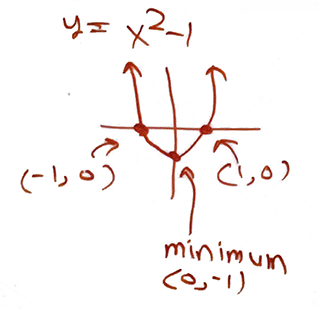 y = x²-1
(-1, 0)
(1, 0)
minimum
(0, -1)